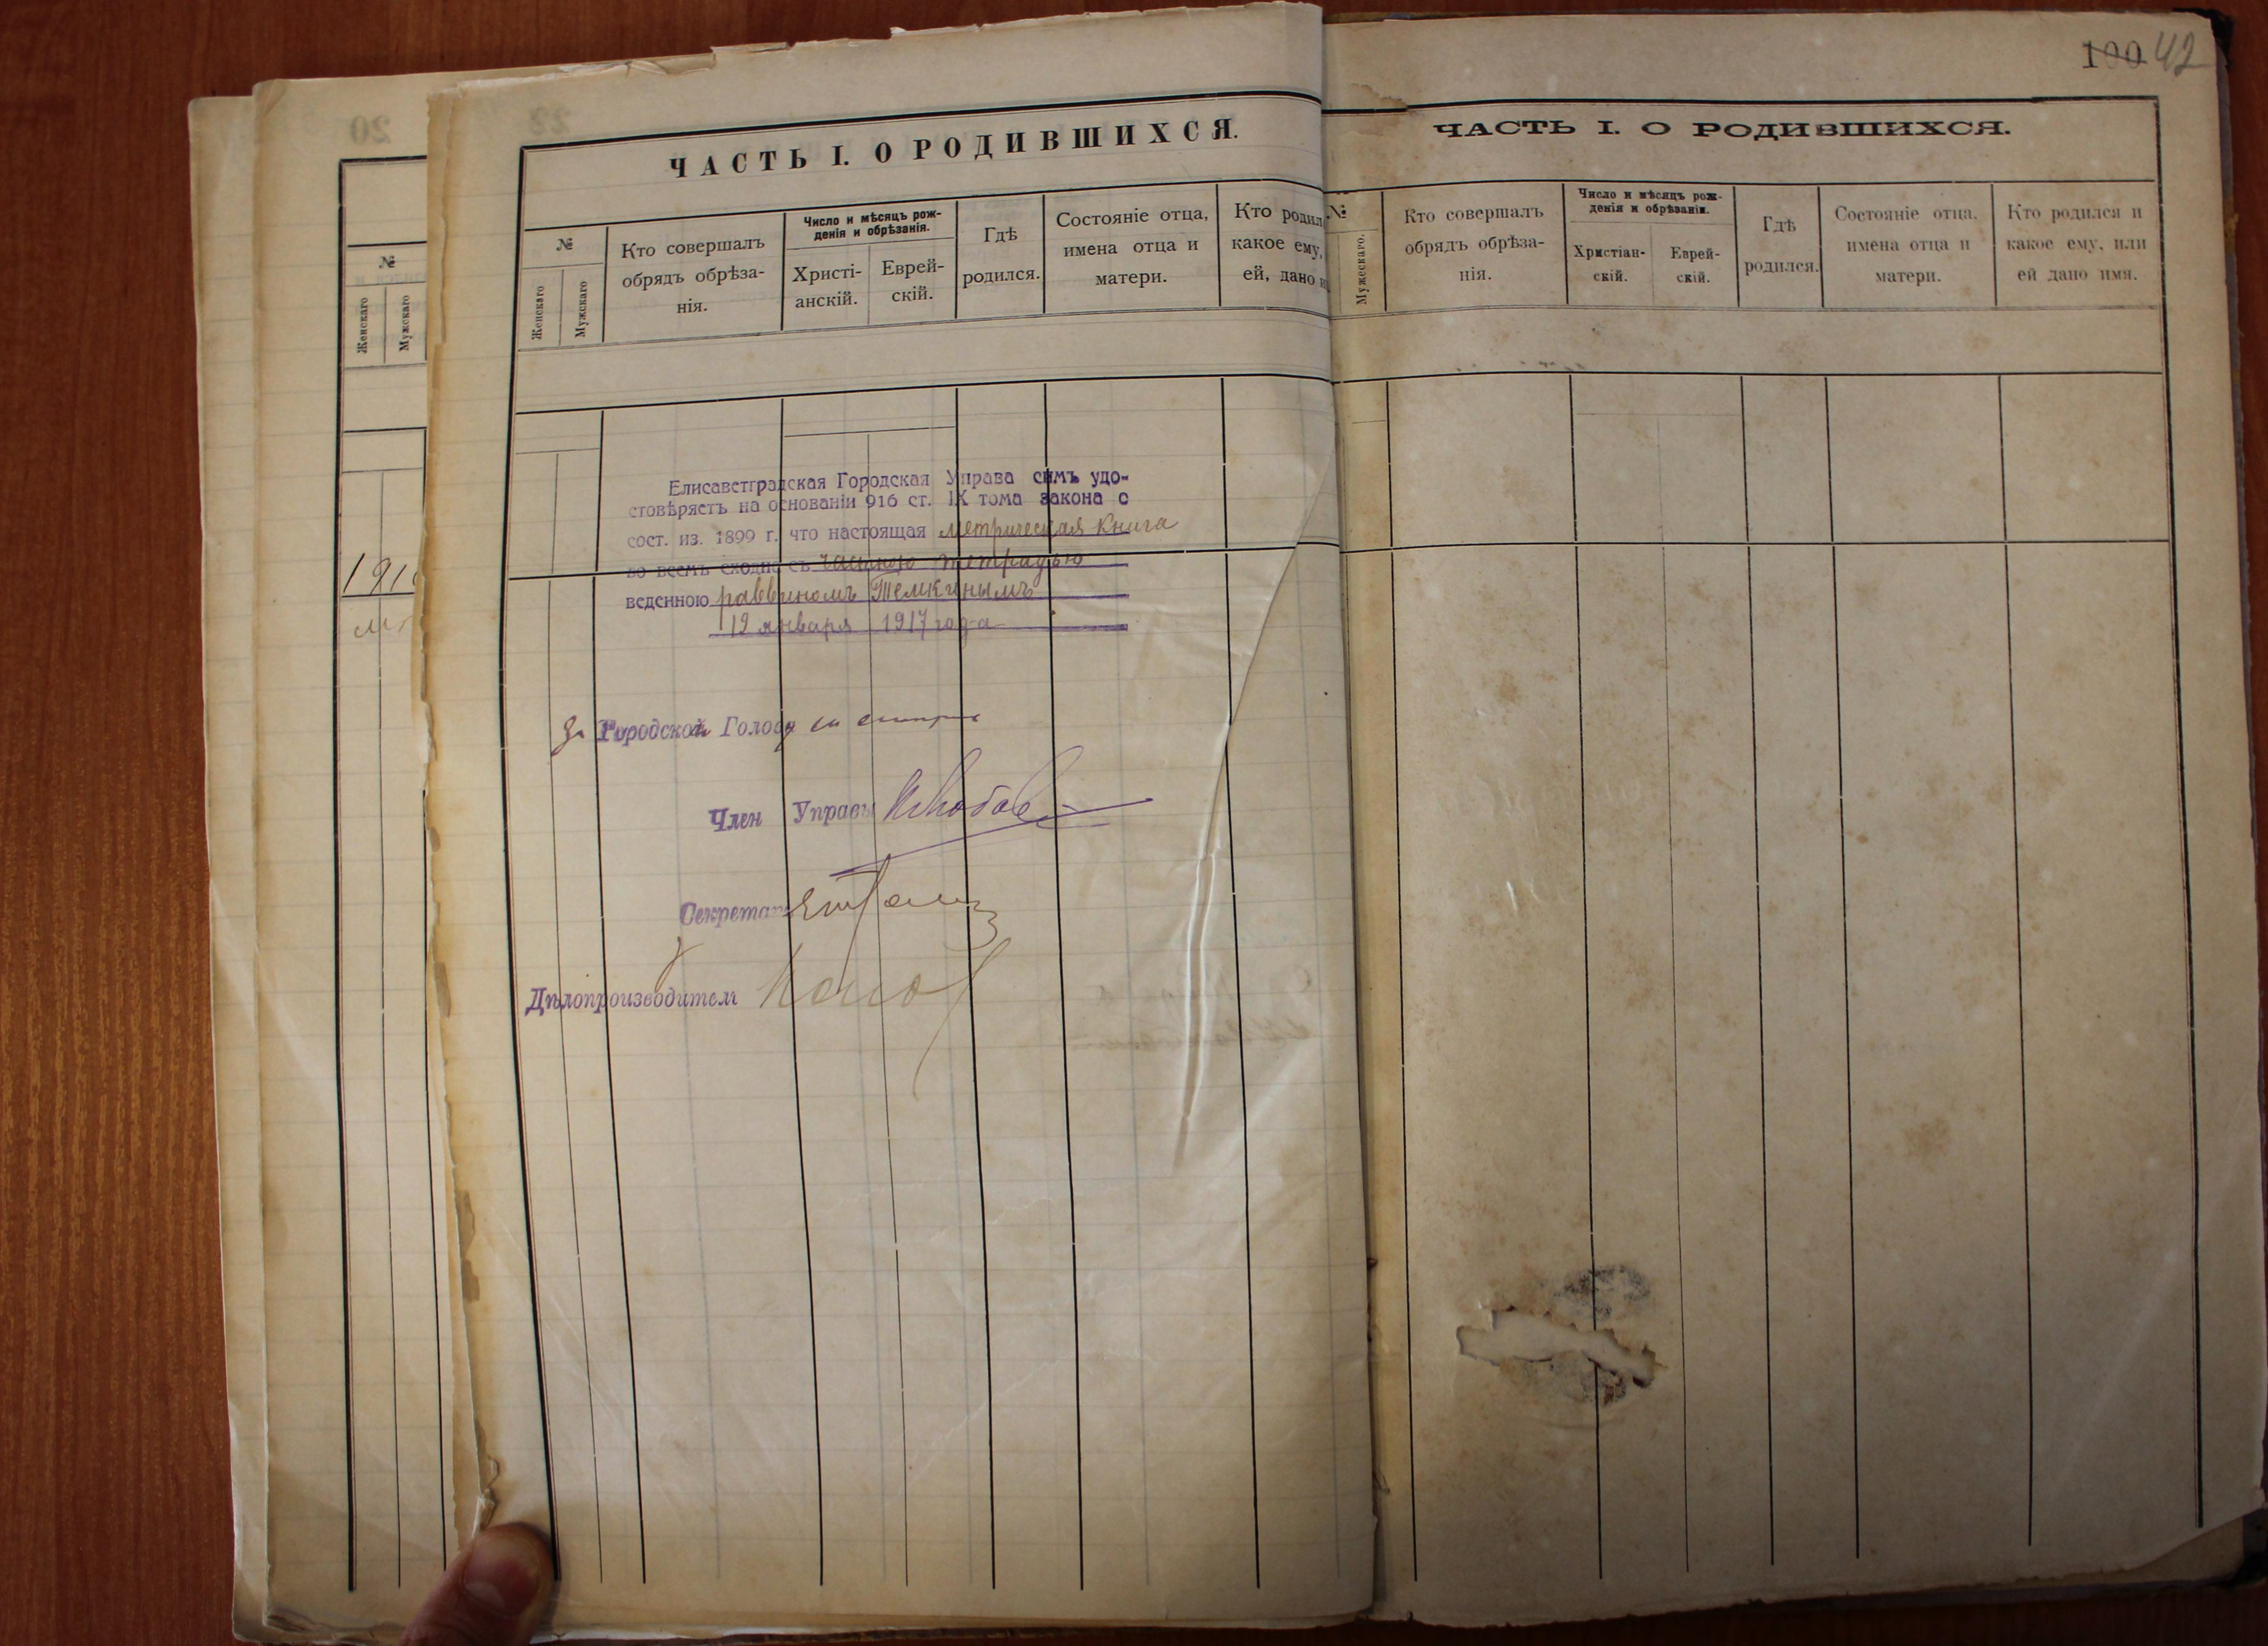 20
№
Женскаго
Мужскаго
191
ЧАСТЬ I. О РОДИВШИХСЯ.
№
Женскаго
Мужскаго
Кто совершалъ
обрядъ обрѣза-
нія.
Число и мѣсяцъ рож-
денія и обрѣзанія.
Христі-
анскій.
Еврей-
скій.
Гдѣ
родился.
Состояніе отца,
имена отца и
матери.
Кто родил
какое ему,
ей, дано
Елисаветградская Городская Управа симъ удо-
стовѣряетъ на основаніи 916 ст. IX тома закона о
сост. из. 1899 г. что настоящая метрическая книга
во всемъ сходна съ частною тетрадью
веденною раввиномъ Темкинымъ
19 января 1917 года
За Городской Голова
Член Управы
Секретарь
Дѣлопроизводитель
100 42
ЧАСТЬ I. О РОДИВШИХСЯ.
№
Мужескаго.
Кто совершалъ
обрядъ обрѣза-
нія.
Число и мѣсяцъ рож-
денія и обрѣзанія.
Христіан-
скій.
Еврей-
скій.
Гдѣ
родился.
Состояніе отца,
имена отца и
матери.
Кто родился и
какое ему, или
ей дано имя.